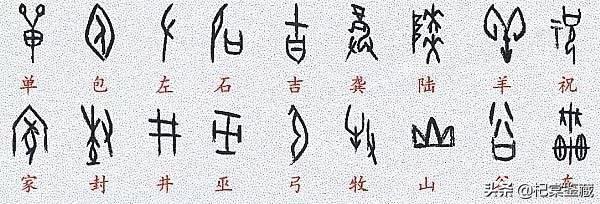 单 包 左 石 吉 龚 陆 羊 祝
家 封 井 巫 弓 牧 山 谷 车
头条 @杞棠鉴藏